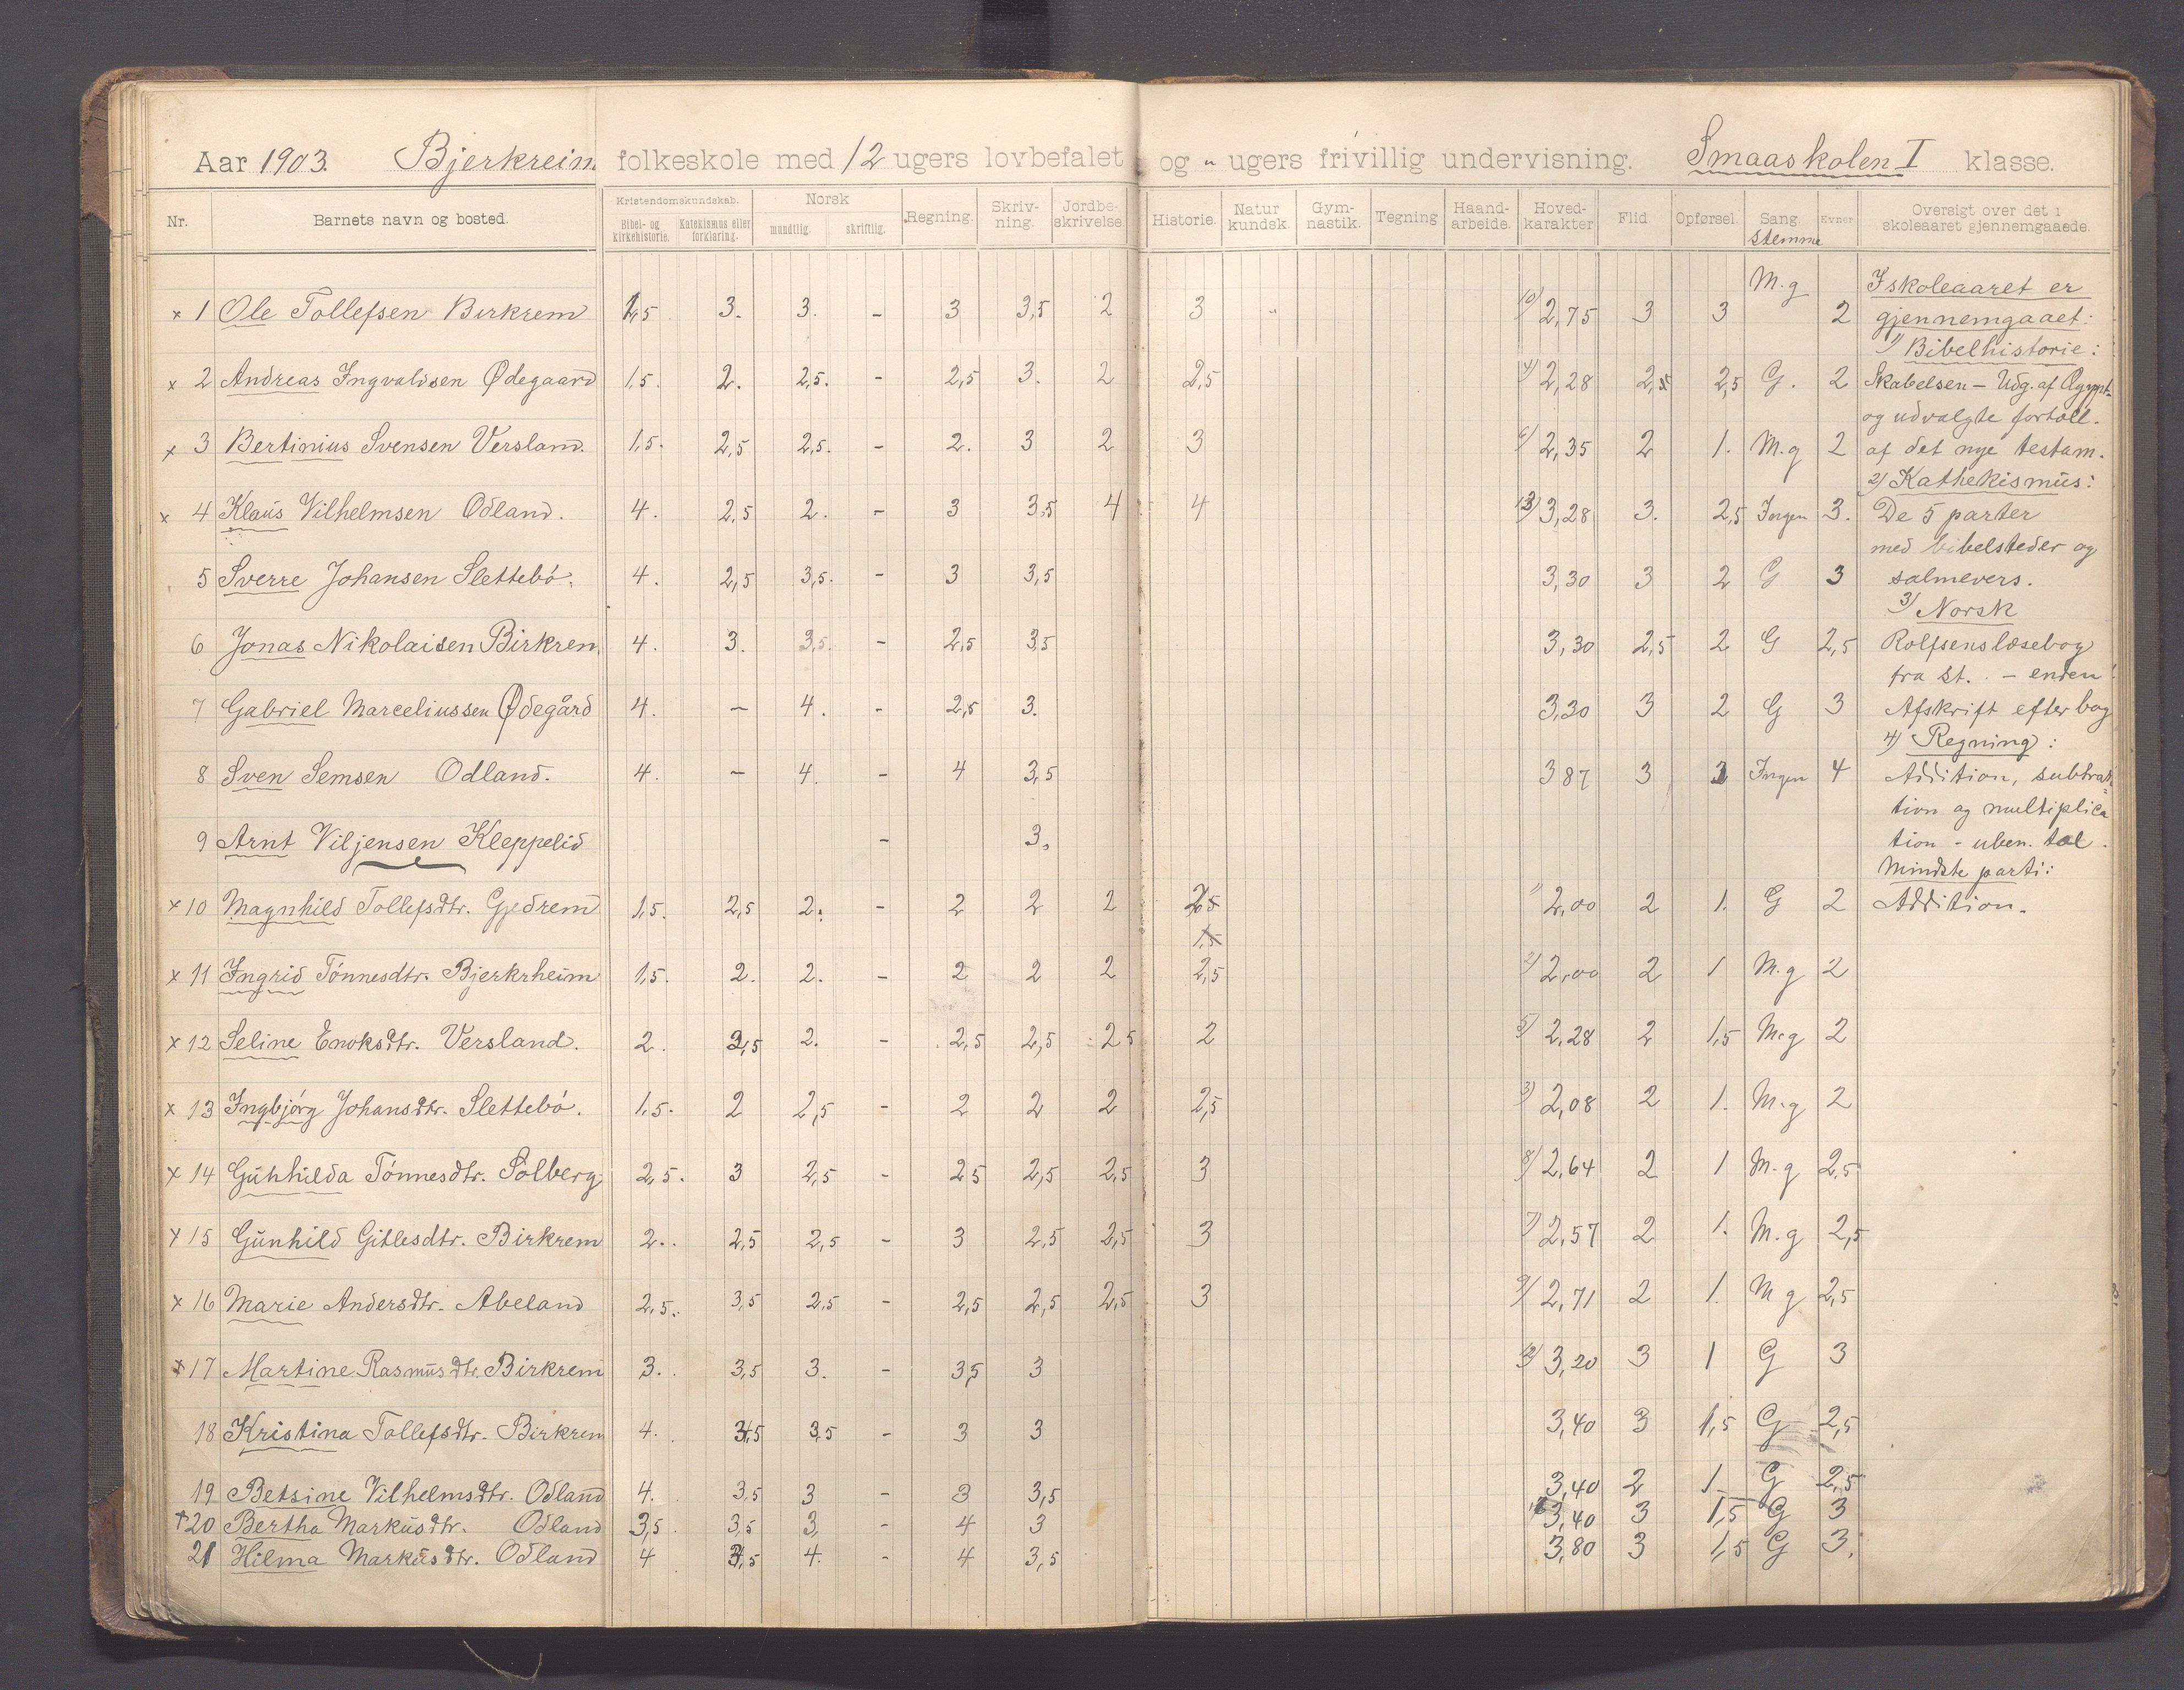 Aar 1903. Bjerkreim folkeskole med 12 ugers lovbefalet og " ugers frivillig undervisning. Smaaskolen I klasse.
Nr. Barnets navn og bosted. Kristendomskundskab. Bibel- og kirkehistorie. Katekismus eller forklaring. Norsk mundtlig. skriftlig. Regning. Skriv-ning. Jordbe-skrivelse Historie. Natur kundsk. Gym-nastik. Tegning Haand-arbeide. Hoved-karakter Flid Opførsel. Sang stemme Evner Oversigt over det i skoleaaret gjennemgaaede.
x 1 Ole Tollefsen Birkrem 1,5 3. 3. - 3 3,5 2 3 " 10) 2,75 3 3 M.g 2
x 2 Andreas Ingvaldsen Ødegaard 1,5. 2. 2,5. - 2,5 3. 2 2,5 4) 2,28 2,5 2,5 G. 2
x 3 Bertinius Svensen Versland. 1,5. 2,5 2,5. - 2. 3 2 3 6) 2,35 2 1. M.g 2
x 4 Klaus Vilhelmsen Odland. 4. 2,5 2. - 3 3,5 4 4 3,28 3. 2,5 Ingen 3.
5 Sverre Johansen Slettebö. 4. 2,5 3,5. - 3 3,5 3,30 3 2 G 3
6 Jonas Nikolaisen Birkrem 4. 3. 3,5. - 2,5 3,5 3,30 2,5 2 G 2,5
7 Gabriel Marceliussen Ødegård 4. - 4. - 2,5 3. 3,30 3 2 G 3
8 Sven Semsen Odland. 4. - 4. - 4 3,5 3 87 3 Ingen 4
9 Arnt Viljensen Kleppelid - 3.
x 10 Magnhild Tollefsdtr. Gjedrem 1,5. 2,5 2. - 2 2 2 1) 2,00 2 1. G 2
1,5
x 11 Ingrid Tönnesdtr. Bjerkrheim 1,5. 2. 2. - 2 2 2 2,5 2) 2,00 2 1 M.g 2
x 12 Seline Enoksdtr. Versland. 2. 2,5 2. - 2,5 2,5 2 5 2 5) 2,28 2 1,5 M.g 2
x 13 Ingbjörg Johansdtr. Slettebö. 1,5. 2 2,5 - 2 2 2 2,5 3) 2,08 2 1. M.g 2
x 14 Gunhilda Tönnesdtr. Solberg 2,5. 3 2,5 - 2 5 2,5 2,5 3 8) 2,64 2 1 M.g 2,5
x 15 Gunhild Gitlesdtr. Birkrem 2. 2,5 2,5 - 3 2,5 2,5 3 7) 2,57 2 1. M.g 2,5
x 16 Marie Andersdtr. Abeland 2,5. 3,5 2,5 - 2,5 2,5 2,5 3 9) 2,71 2 1. M g 2,5
x 17 Martine Rasmusdtr. Birkrem 3. 3,5 3. - 3,5 3 3,20 3 1 G 3
18 Kristina Tollefsdtr. Birkrem 4. 3,5 3,5 - 3 3 3,40 3 1,5 G 2,5
19 Betsine Vilhelmsdtr. Odland 4. 3,5 3 - 3 3,5 3,40 2 1. G 2,5
† 20 Bertha Markusdtr. Odland 3,5 3,5 3, - 4 3 3,40 3 1,5 G 3
21 Hilma Markusdtr. Odland 4 4. - 4 3,5 3,80 3 1,5 G 3.
I skoleaaret er
gjennemgaaet:
1) Bibelhistorie:
Skabelsen - Udg. af Ægypt.
og udvalgte fortæll.
af det nye testam.
2) Kathekismus:
De 5 parter
med bibelsteder og
salmevers.
3) Norsk
Rolfsens læsebog
fra st. - enden
Afskrift efter bog
4) Regning:
Addition, subtrak
tion og multiplica
tion - uben. tal.
Mindste parti:
Addition.